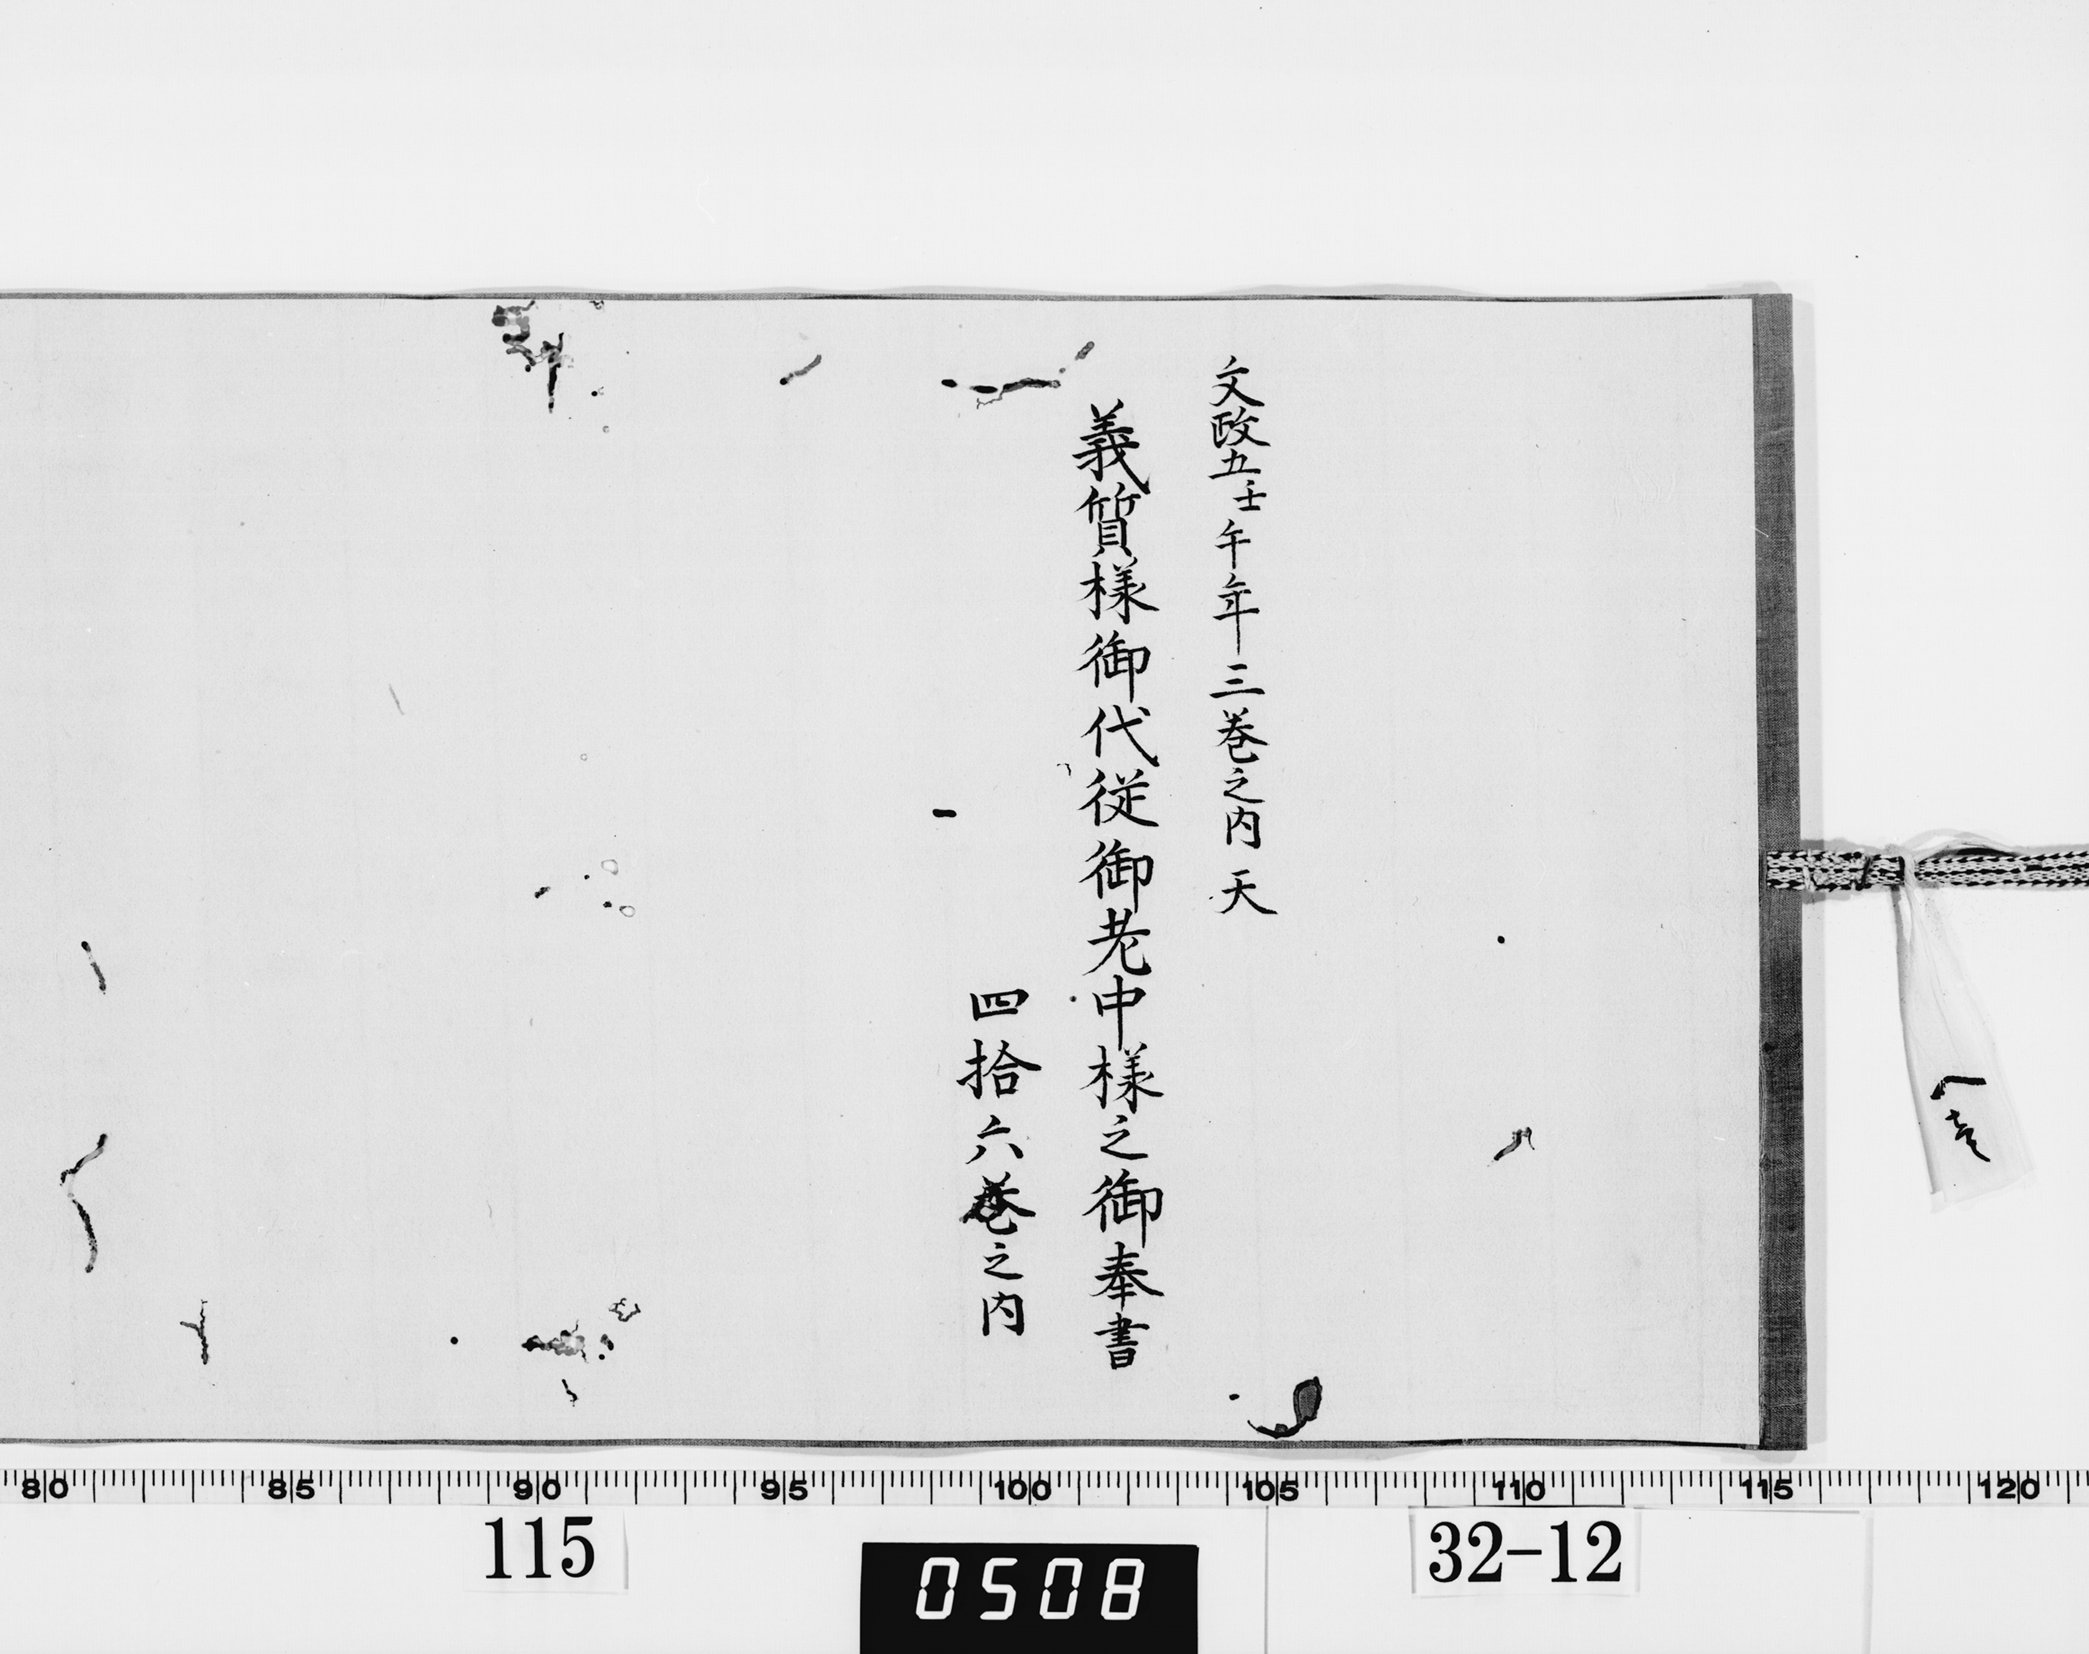 文政五壬午年三巻之内 天
義質様御代従御老中様之御奉書
四拾六巻之内
80 85 90 95 100 105 110 115 120
115
0508
32-12